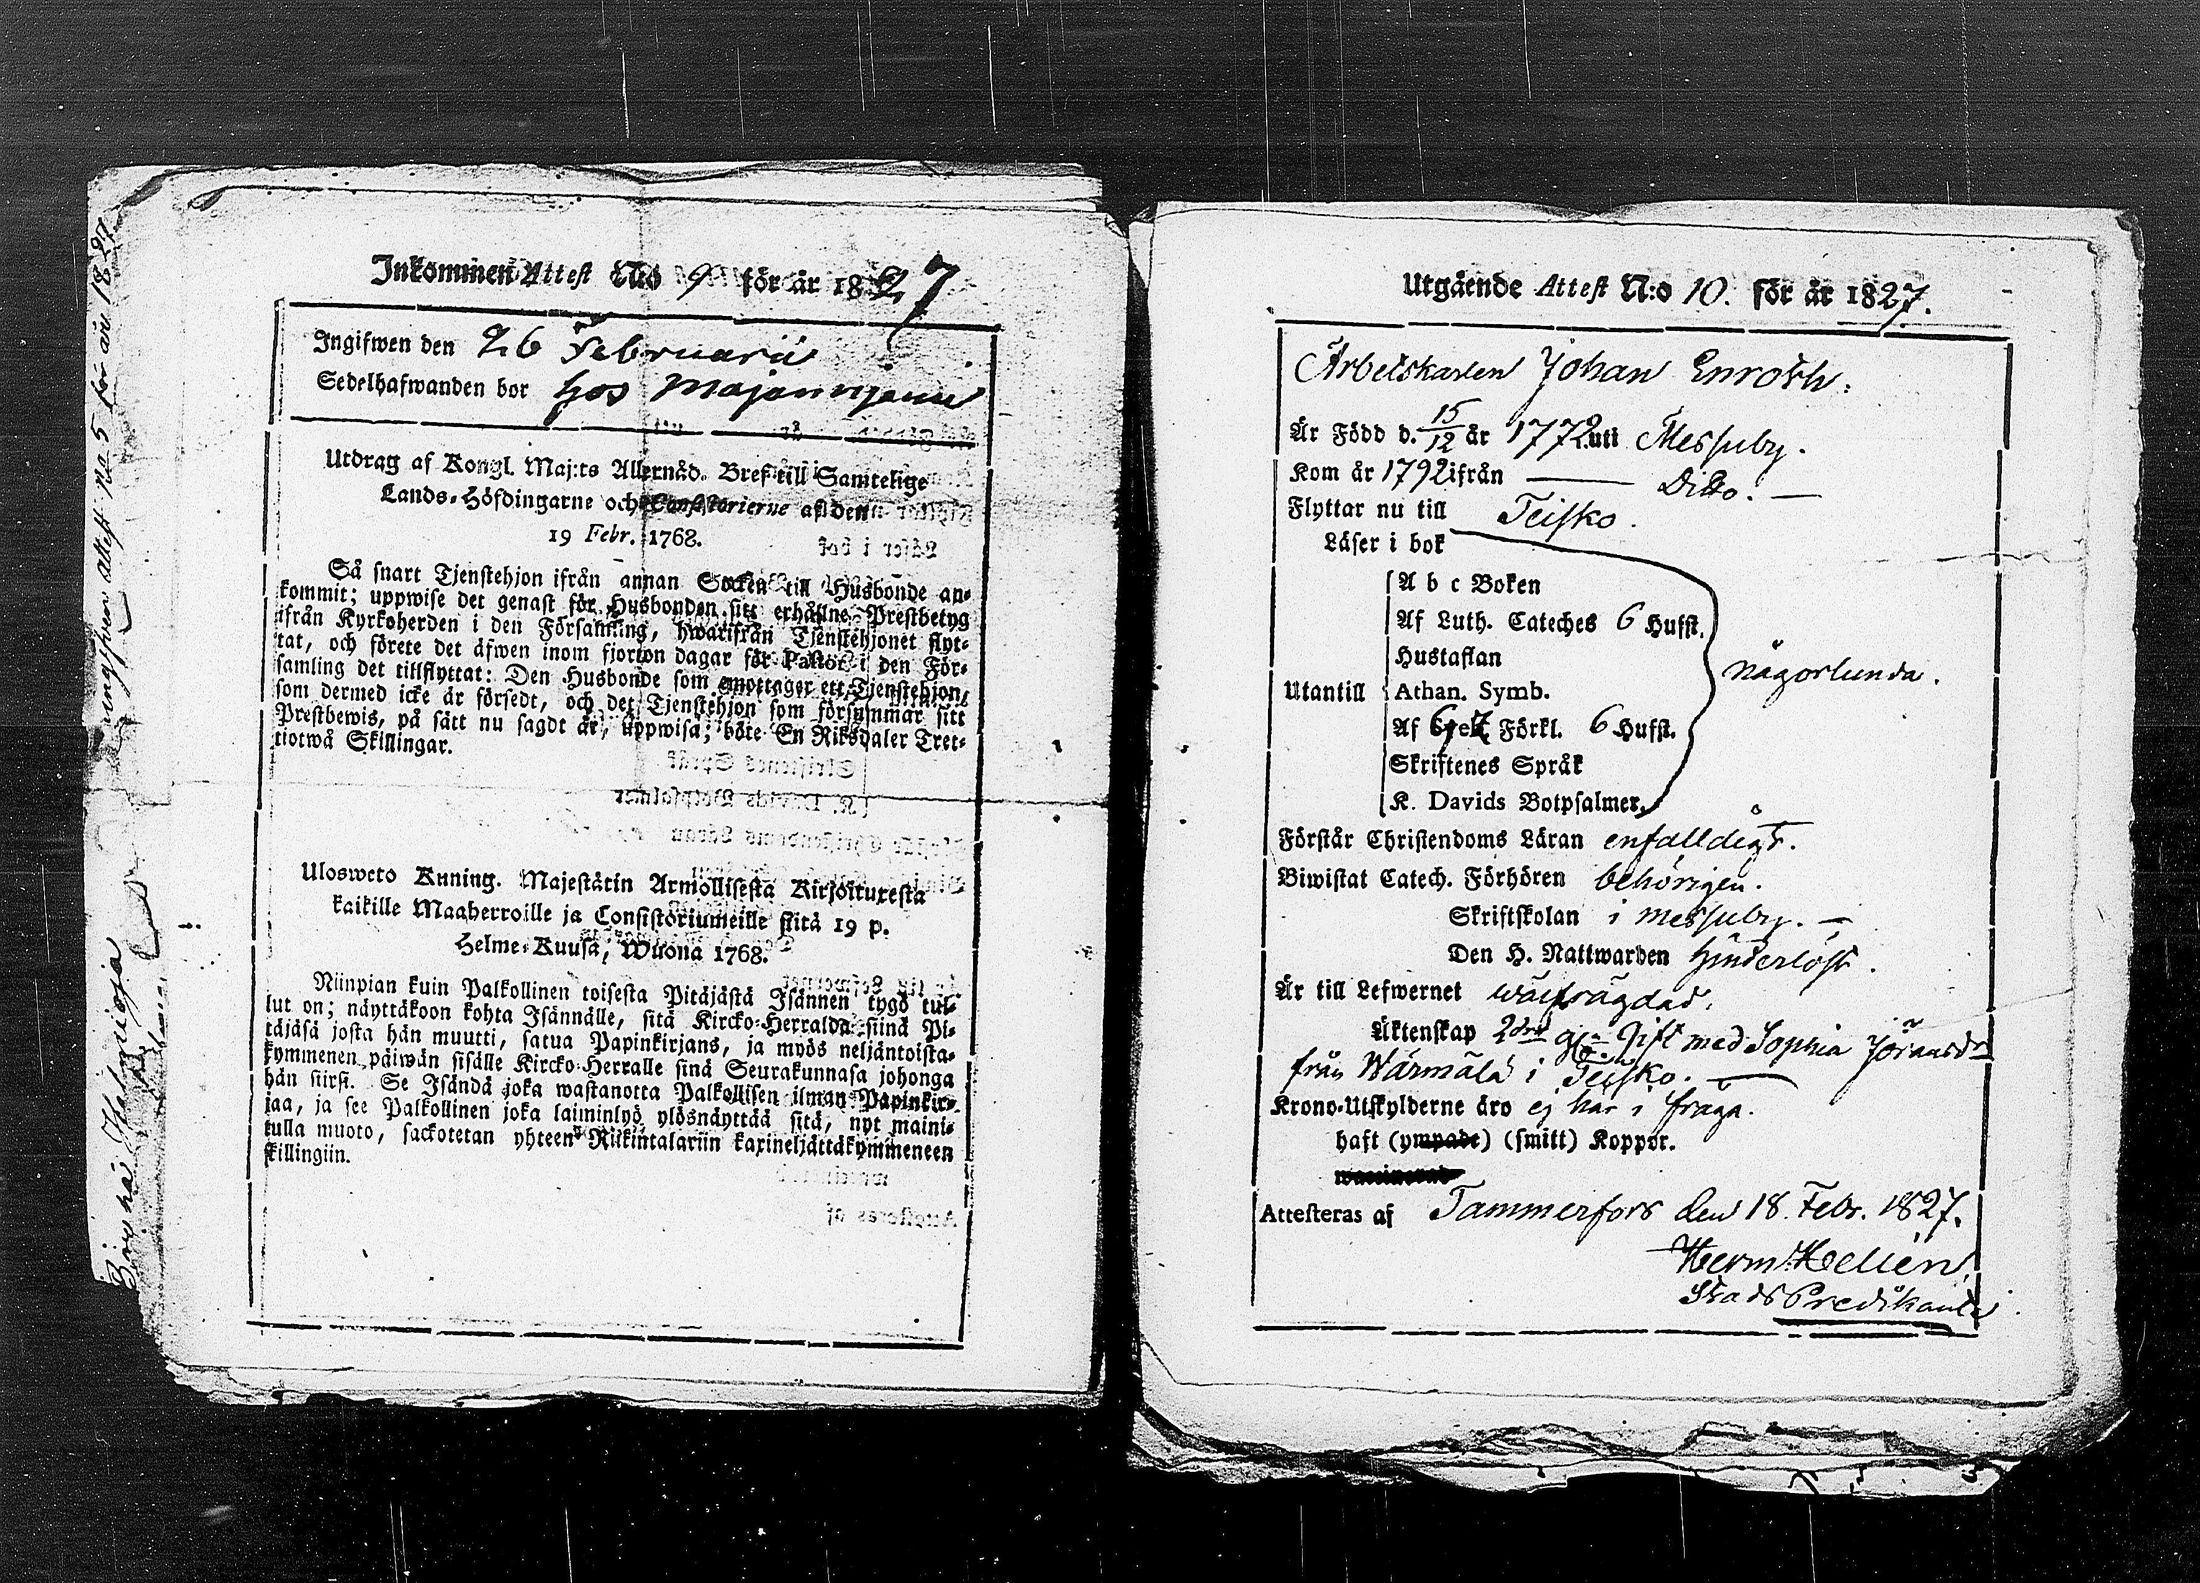 Inkommen Attest N:o 9 för år 1827
Ingifwen den 26 Februarii
Sedelhafwanden bor hos
Utdrag af Kongl. Maj:ts Allernåd. Bref till Samtelige
Lands-Höfdingarne och Consistorierne af den
19 Febr. 1768.
Så snart Tjenstehjon ifrån annan Socken till Husbonde an-
kommit; uppwise det genast för Husbonden sitt erhållne Prestbetyg
ifrån Kyrkoherden i den Församling, hwarifrån Tjenstehjonet flyt-
tat, och förete det äfwen inom fjorton dagar för Pastor i den För-
samling det tillflyttat: Den Husbonde som emottager ett Tjenstehjon,
som dermed icke är försedt, och det Tjenstehjon som försummar sitt
Prestbewis, på sätt nu sagdt är, uppwisa; böte En Riksdaler Tret-
tiotwå Skillingar.
Ulosweto Kuning. Majestätin Armollisesta Kirjoituxesta
kaikille Maaherroille ja Consistoriumeille siitä 19 p.
Helme-Kuusa, Wuona 1768.
Niinpian kuin Palkollinen toisesta Pitäjästä Isännen tygö tul-
lut on; näyttäkoon kohta Isännälle, sitä Kircko-Herralda siinä Pi-
täjäsä josta hän muutti, satua Papinkirjans, ja myös neljäntoista-
kymmenen päiwän sisälle Kircko-Herralle siinä Seurakunnasa johonga
hän siirsi. Se Isändä joka wastanotta Palkollisen ilman Papinkir-
jaa, ja see Palkollinen joka laiminlyö ylösnäyttää sitä, nyt maini-
tulla muoto, sackotetan yhteen Riikintalariin kaxineljättäkymmeneen
skillingiin.
attest No 5 för år 1827
Utgående Attest N:o 10. för år 1827.
Arbetskarlen Johan Enroth.
Är Född d. 15/12 år 1772 uti Messuby.
Kom år 1792 ifrån — Ditto. —
Flyttar nu till Teisko.
Läser i bok
A b c Boken
Af Luth. Cateches 6 Hufst.
Hustaflan
Utantill Athan. Symb.
Af Förkl. 6 Hufst.
Skriftenes Språk
K. Davids Botpsalmer.
någorlunda.
Förstår Christendoms Läran enfalldigt.
Biwistat Catech. Förhören behörigen.
Skriftskolan i Messuby. —
Den H. Nattwarden hinderlöst.
Är till Lefwernet wälfrägdad.
Äktenskap 2dra Gift med Sophia Jöransdr
från Wärmälä i Teisko. —
Krono-Utskylderne äro ej här i fråga.
haft (ympade) (smitt) Koppor.
waccinerad
Attesteras af Tammerfors den 18. Febr. 1827.
Herm. Hellén
StadsPredikant